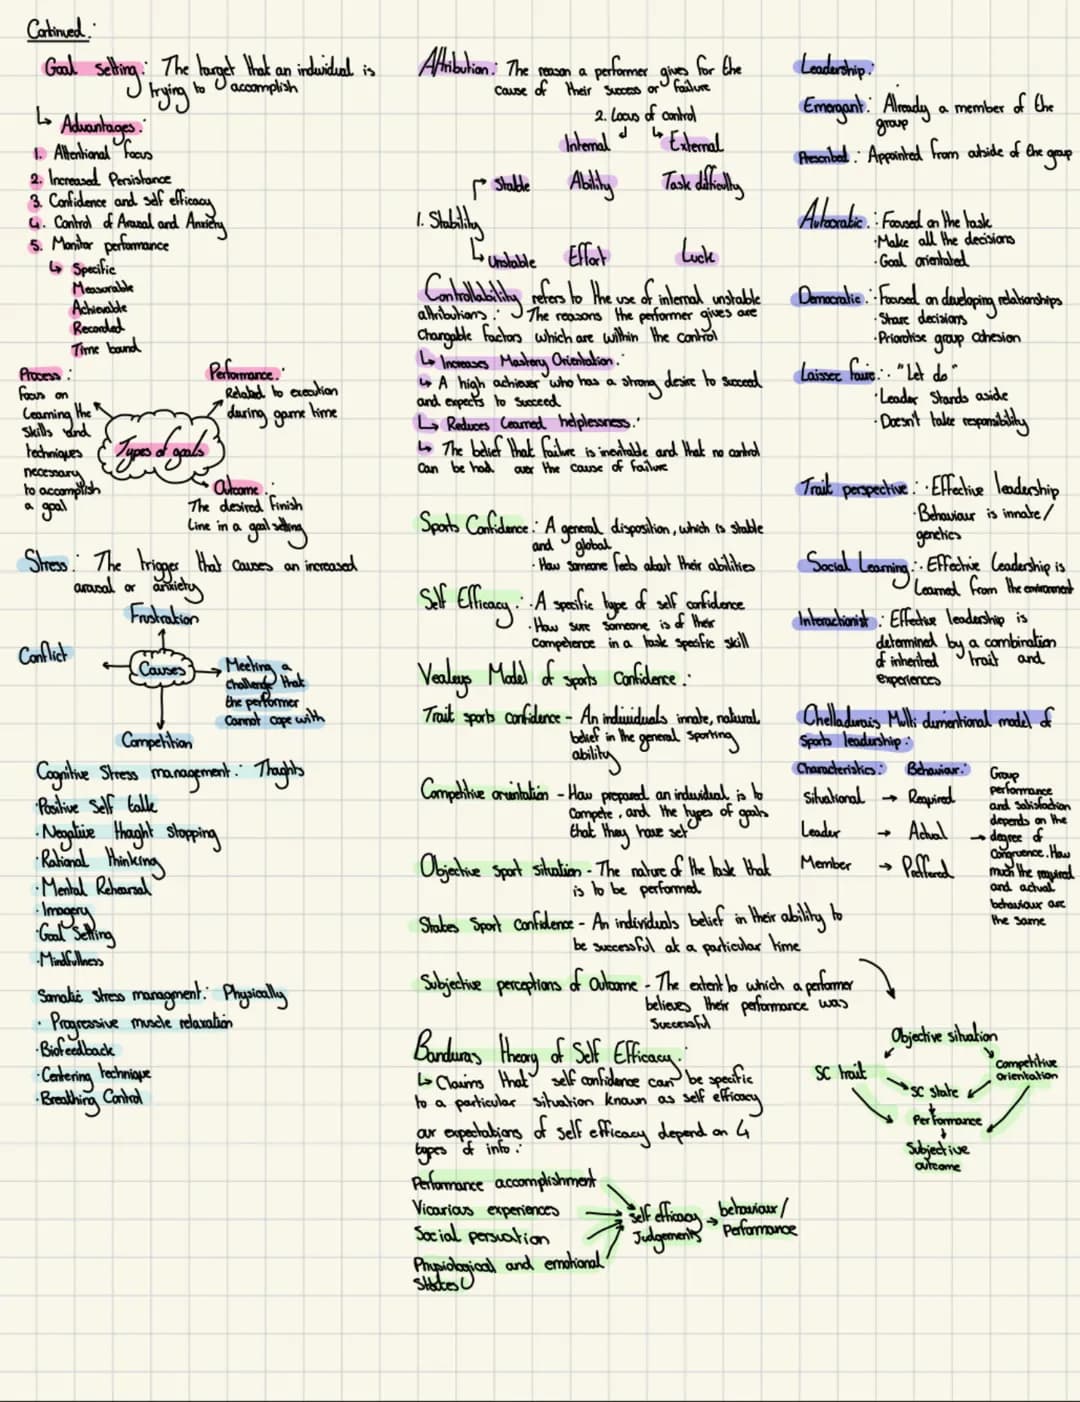 Continued :
Goal setting : The target that an individual is
trying to accomplish
↳ Advantages :
1. Attentional focus
2. Increased Persistance
3. Confidence and self efficacy
4. Control of Arousal and Anxiety
5. Monitor performance
↳ Specific
Measurable
Achievable
Recorded
Time bound
Process :
focus on
Learning the
skills and
techniques
necessary
to accomplish
a goal
Performance :
Related to execution
during game time
Types of goals
Outcome :
The desired finish
Line in a goal setting
Stress : The trigger that causes an increased
arousal or anxiety
Frustration
Conflict
Causes
Meeting a
challenge that
the performer
cannot cope with
Competition
Cognitive Stress management : Thoughts
· Positive Self talk
· Negative thought stopping
· Rational thinking
· Mental Rehearsal
· Imagery
· Goal Setting
· Mindfulness
Somatic stress managment : Physically
· Progressive muscle relaxation
· Biofeedback
· Centering technique
· Breathing Control
Attribution : The reason a performer gives for the
cause of their success or failure
2. Locus of control
Internal External
Stable Ability Task difficulty
1. Stability
Unstable Effort Luck
Controllability refers to the use of internal unstable
attributions : The reasons the performer gives are
changable factors which are within the control
↳ Increases Mastery Orientation :
↳ A high achiever who has a strong desire to succeed
and expects to succeed
↳ Reduces Learned helplessness :
↳ The belief that failure is inevitable and that no control
can be had over the cause of failure
Sports Confidence : A general disposition, which is stable
and global
· How someone feels about their abilities
Self Efficacy : · A specific type of self confidence
· How sure someone is of their
Competence in a task specific skill
Vealeys Model of sports Confidence :
Trait sports confidence - An individuals innate, natural
belief in the general sporting
ability
Competitive orientation - How prepared an individual is to
compete, and the types of goals
that they have set
Objective sport situation - The nature of the task that
is to be performed
States Sport confidence - An individuals belief in their ability to
be successful at a particular time
Subjective perceptions of Outcome - The extent to which a performer
believes their performance was
successful
Banduras theory of Self Efficacy :
↳ Claims that self confidence can be specific
to a particular situation known as self efficacy
our expectations of self efficacy depend on 4
types of info :
Performance accomplishment
Vicarious experiences
Social persuation
Physiological and emotional
States
self efficacy
Judgements
behaviour /
Performance
Leadership :
Emergant : Already a member of the
group
Prescribed : Appointed from outside of the group
Autocratic : · Focused on the task
· Make all the decisions
· Goal orientated
Democratic : · Focused on developing relationships
· Share decisions
· Priorotise group cohesion
Laissez faire : · "Let do"
· Leader stands aside
· Doesn't take responsibility
Trait perspective : · Effective leadership
· Behaviour is innate /
genetics
Social Learning : · Effective leadership is
Learned from the environment
Interactionist : Effective leadership is
determined by a combination
of inherited trait and
experiences
Chelladurais Multi dimentional model of
Sports leadership :
Characteristics : Behaviour :
Situational → Required
Leader → Actual →
Member → Preffered
Group
performance
and satisfaction
depends on the
degree of
Congruence. How
much the required
and actual
behaviour are
the same
Objective situation
SC trait
Competitive
orientation
SC state
Performance
Subjective
outcome